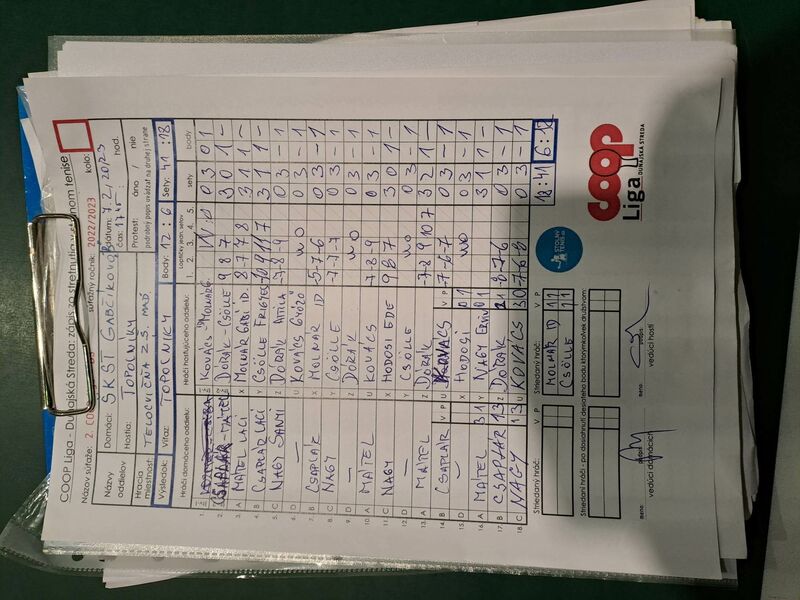 COOP Liga - Dunajská Streda: zápis zo stretnutia v stolnom tenise
Názov súťaže: 2. súťažný ročník: 2022/2023 kolo:
Názvy oddielov
Domáci: SK ST GABČÍKOVO
Hostia: TOPOĽNÍKY
dátum: 7.2.2023
čas: 17 hod.
Hracia miestnosť: TELOCVIČNA Z.Š. MAĎ
Protest: áno / nie
podrobný popis uvádzať na druhej strane
Výsledok: Víťaz: TOPOĽNÍKY Body: 12 : 6 Sety: 41 : 18
Hráči domáceho oddielu: Hráči hosťujúceho oddielu: Loptičky jedn. setov 1. 2. 3. 4. 5. sety body
1. KOVACS MOLNAR G. W.O 0 3 0 1
2. CSAPLAR MATEL DÓRÁK - CSÖLLE 9 8 7 3 0 1 -
3. A MATEL LACI X MOLNAR GABI ID. 8 7 7 8 3 1 1 -
4. B CSAPLAR LACI Y CSÖLLE FRIGYES 3 1 1 -
5. C NAGY SANYI Z DÓRÁK ATTILA -7-8-9 0 3 - 1
6. D — U KOVACS GYÖZÖ WO 0 3 - 1
7. B CSAPLAR X MOLNAR ID -5-7-6 0 3 - 1
8. C NAGY Y CSÖLLE -7-7-7 0 3 - 1
9. D — Z DÓRÁK WO 0 3 - 1
10. A MATEL U KOVACS -7-8-9 0 3 - 1
11. C NAGY X HODOSI EDE 9 8 7 3 0 1 -
12. D — Y CSÖLLE WO 0 3 - 1
13. A MATEL Z DÓRÁK -7-8 9 10 7 3 2 1 -
14. B CSAPLAR U KOVACS -7-6-7 0 3 - 1
V P V P
15. D — X HODOSI 0 1 WO 0 3 - 1
16. A MATEL 3 1 Y NAGY 0 1 3 1 1 -
17. B CSAPLAR 1 3 Z DÓRÁK -8-7-6 0 3 - 1
18. C NAGY 1 3 U KOVACS 3 0 -7-6-8 0 3 - 1
18:41 6:12
Striedaný hráč: V P Striedaný hráč: V P
MOLNAR ID 1 1
CSÖLLE 1 1
Striedaní hráči - po dosiahnutí desiateho bodu ktorýmkoľvek družstvom:
meno podpis
vedúci domácich
meno podpis
vedúci hostí
STOLNÝ TENIS
coop
Liga DUNAJSKÁ STREDA